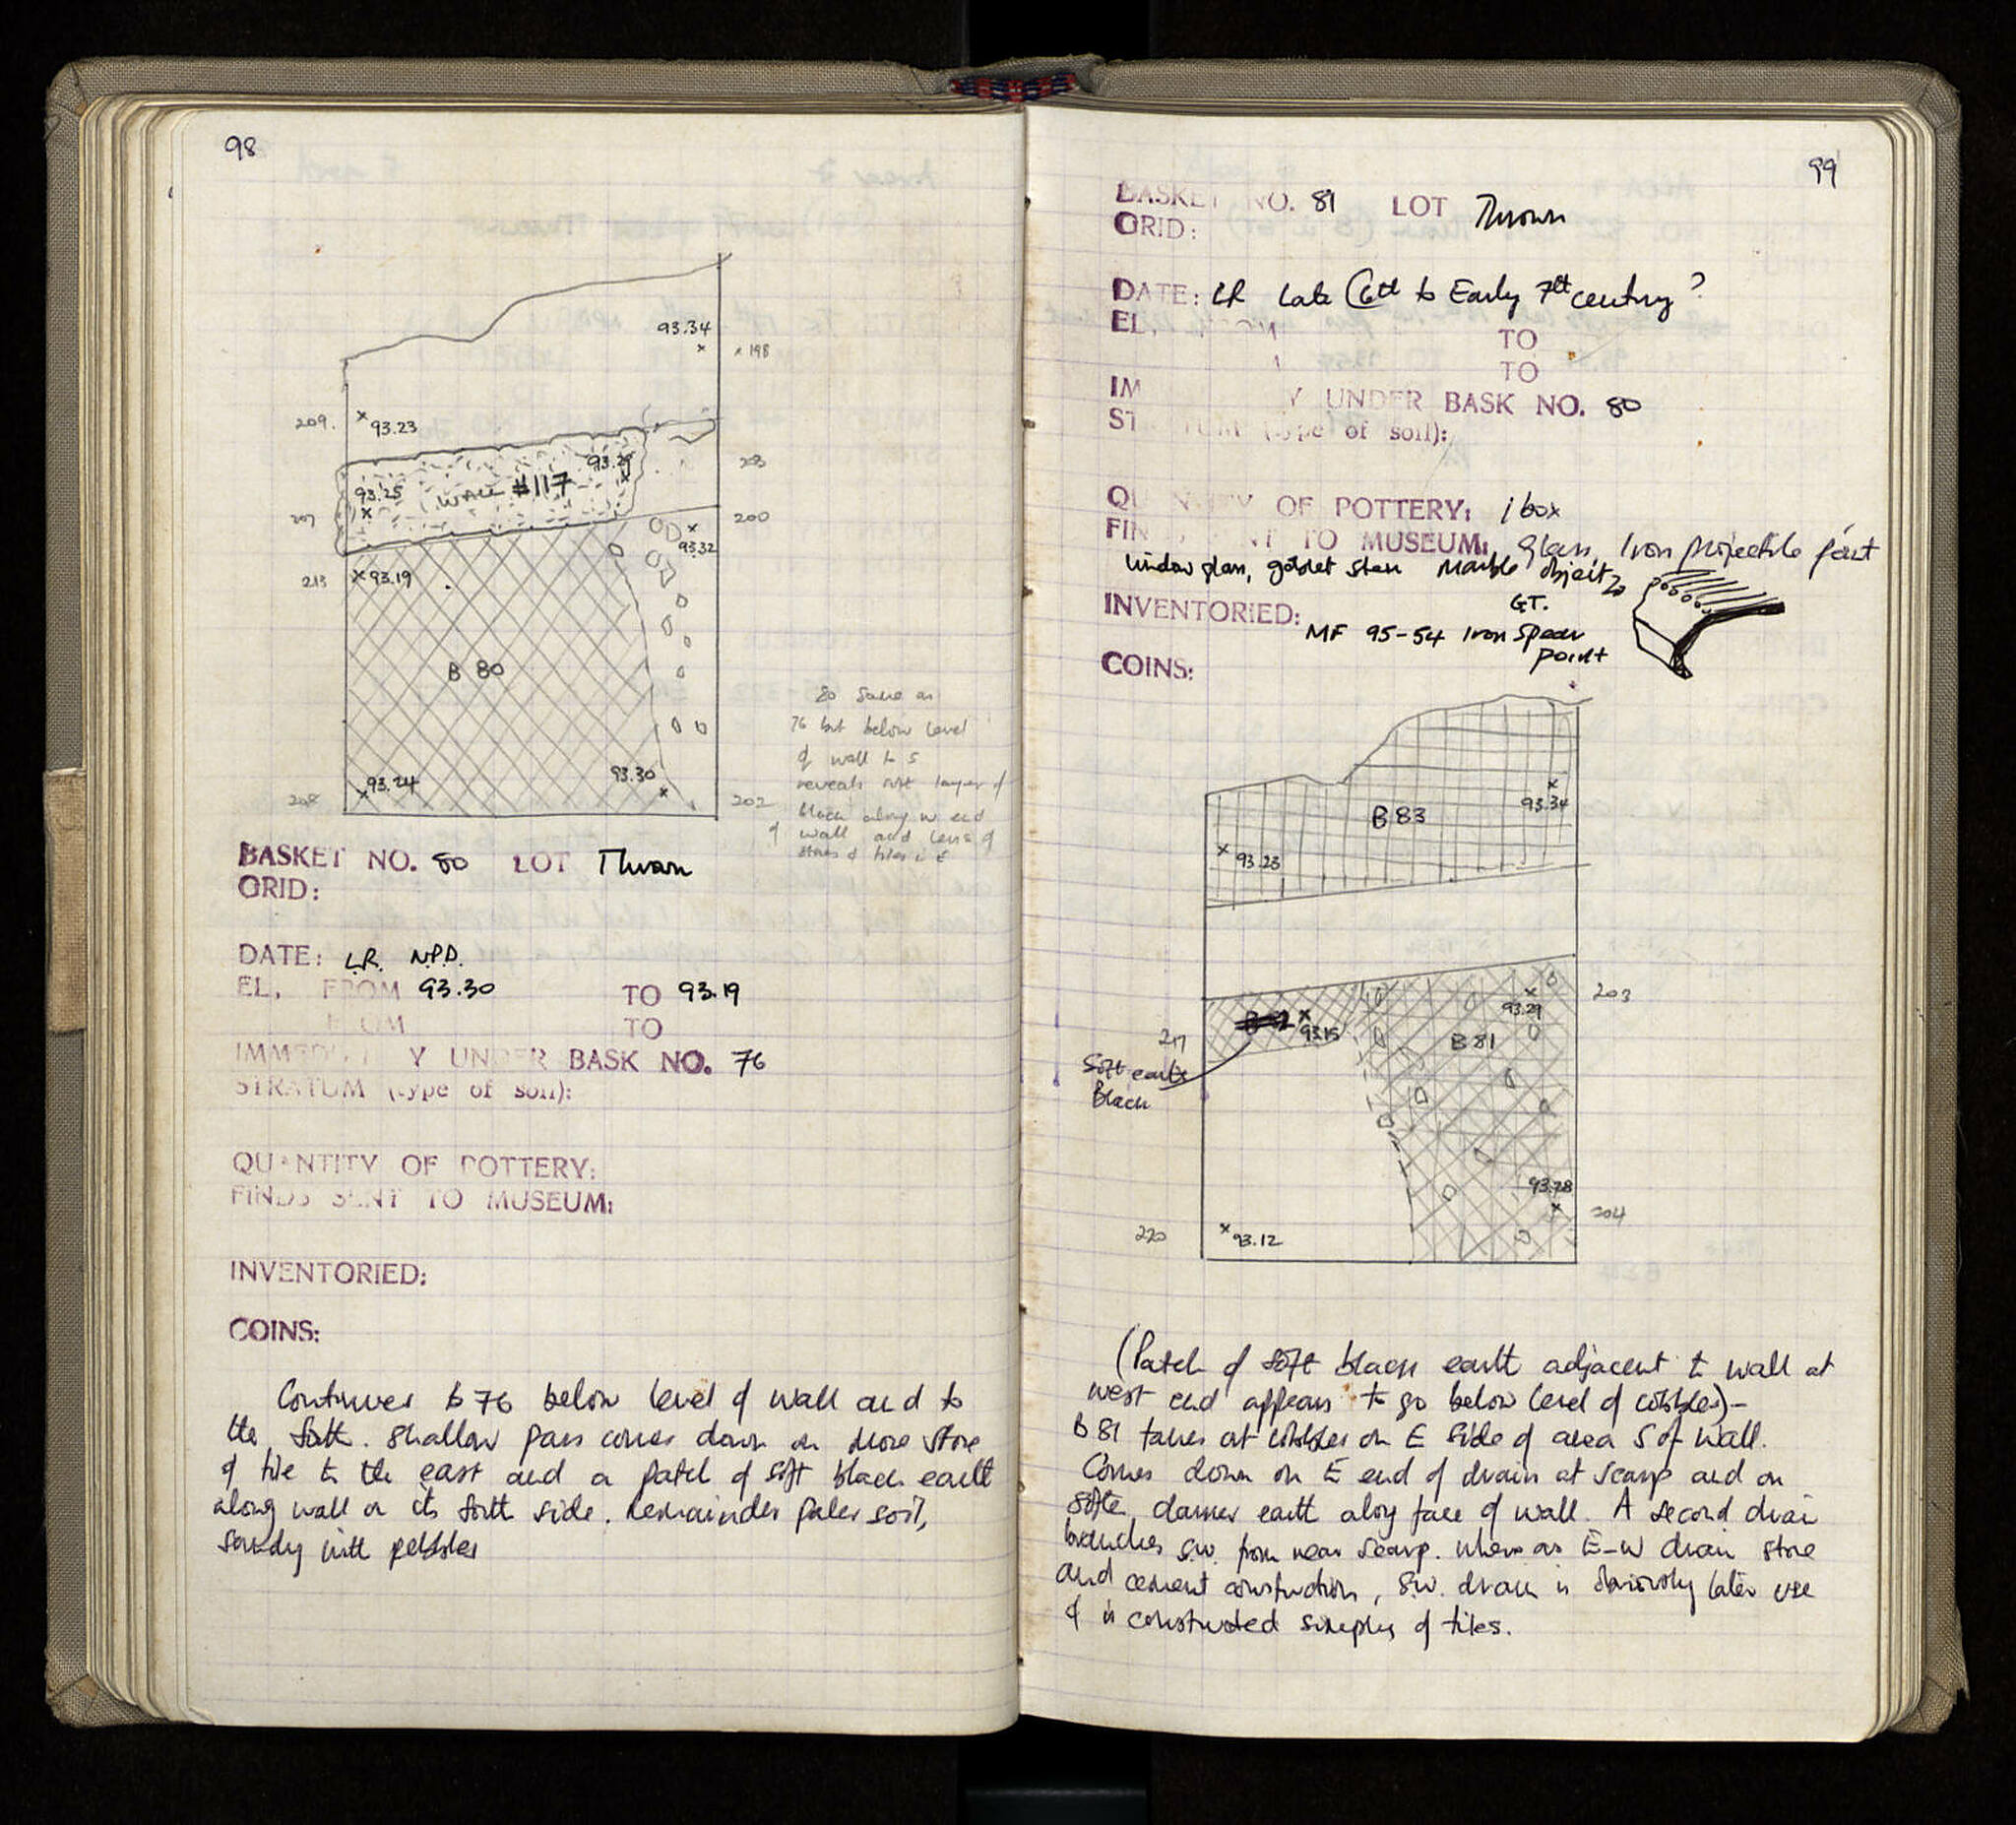 98
93.34
x 198
209.
x 93.23
93.29
203
93.25
(WALL #117
207
200
93.32
213
x 93.19
B 80
93.24
93.30
208
202
80 same as
76 but below level
of wall to S
reveals soft layer of
black along w end
of wall and lens of
stones & tiles in E
BASKET NO. 80 LOT Thrown
GRID:
DATE: L.R. N.P.D.
EL, FROM 93.30 TO 93.19
FROM TO
IMMEDI Y UNDER BASK NO. 76
STRATUM (type of soil):
QUANTITY OF POTTERY:
FINDS SENT TO MUSEUM:
INVENTORIED:
COINS:
Continues B 76 below level of wall and to
the South. Shallow pass comes down on more stone
& tile to the east and a patch of soft black earth
along wall on its South side. Remainder paler soil,
sandy with pebbles
99
BASKET NO. 81 LOT Thrown
GRID:
DATE: LR Late 6th to Early 7th century?
EL, FROM TO
TO
IM Y UNDER BASK NO. 80
ST TUM (type of soil):
QU N Y OF POTTERY: 1 box
FIN NT TO MUSEUM: Glass, Iron projectile point
window glass, goblet stem Marble object
GT.
INVENTORIED: MF 95-54 Iron spear
point
COINS:
93.34
B 83
93.23
203
93.29
93.15
B 81
217
Soft earth
Black
93.28
204
220
x 93.12
(Patch of soft black earth adjacent to wall at
west end appears to go below level of cobbles)-
B 81 takes out cobbles on E side of area S of wall.
Comes down on E end of drain at scarp and on
softer, darker earth along face of wall. A second drain
branches S.W. from near scarp. Where as E-W drain stone
and cement construction, S.W. drain is obviously later use
& is constructed simply of tiles.